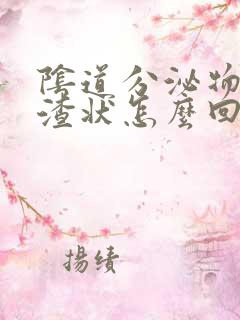 陰道分泌物
渣状怎麼回
揚績